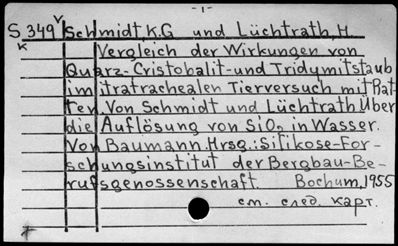 - 1 -
S 349 Schmidt, K.G. und Lüchtrath, H.
K
Vergleich der Wirkungen von
Quarz- Cristobalit- und Tridymitstaub
im itratrachealen Tierversuch mit Rat-
ten. Von Schmidt und Lüchtrath Über
die Auflösung von SiO₂ in Wasser.
Von Baumann. Hrsg.: Silikose-For-
schungsinstitut der Bergbau-Be-
rufsgenossenschaft. Bochum, 1955
см. след. карт.